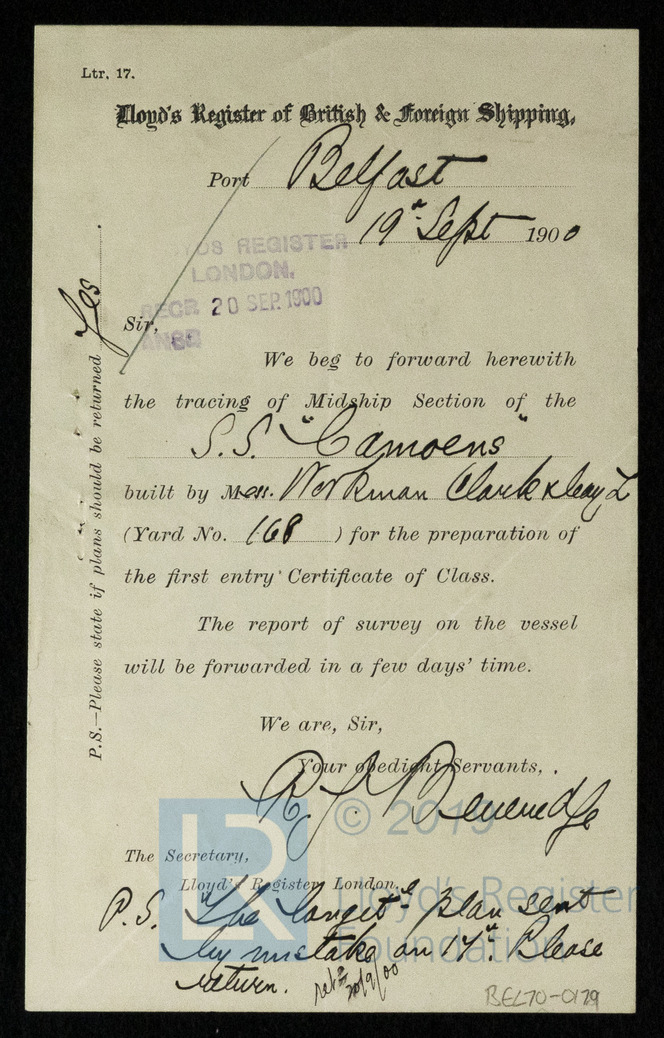 Ltr. 17.
Lloyd's Register of British & Foreign Shipping,
Port Belfast
19th Sept 1900
LLOYDS REGISTER
LONDON.
RECR 20 SEP. 1900
ANSD
Sir,
We beg to forward herewith
the tracing of Midship Section of the
S.S. "Camoens"
built by Mess. Workman Clark & Coy L
(Yard No. 168 ) for the preparation of
the first entry Certificate of Class.
The report of survey on the vessel
will be forwarded in a few days' time.
We are, Sir,
Your obedient Servants,
R. J. Beveridge
The Secretary,
Lloyd's Register London.
P.S. The longitl plan sent
by mistake on 17th. Please
return. retd 20/9/00
P.S.—Please state if plans should be returned Yes
BEL70-0179
LR © 2019
Lloyd's Register
Foundation